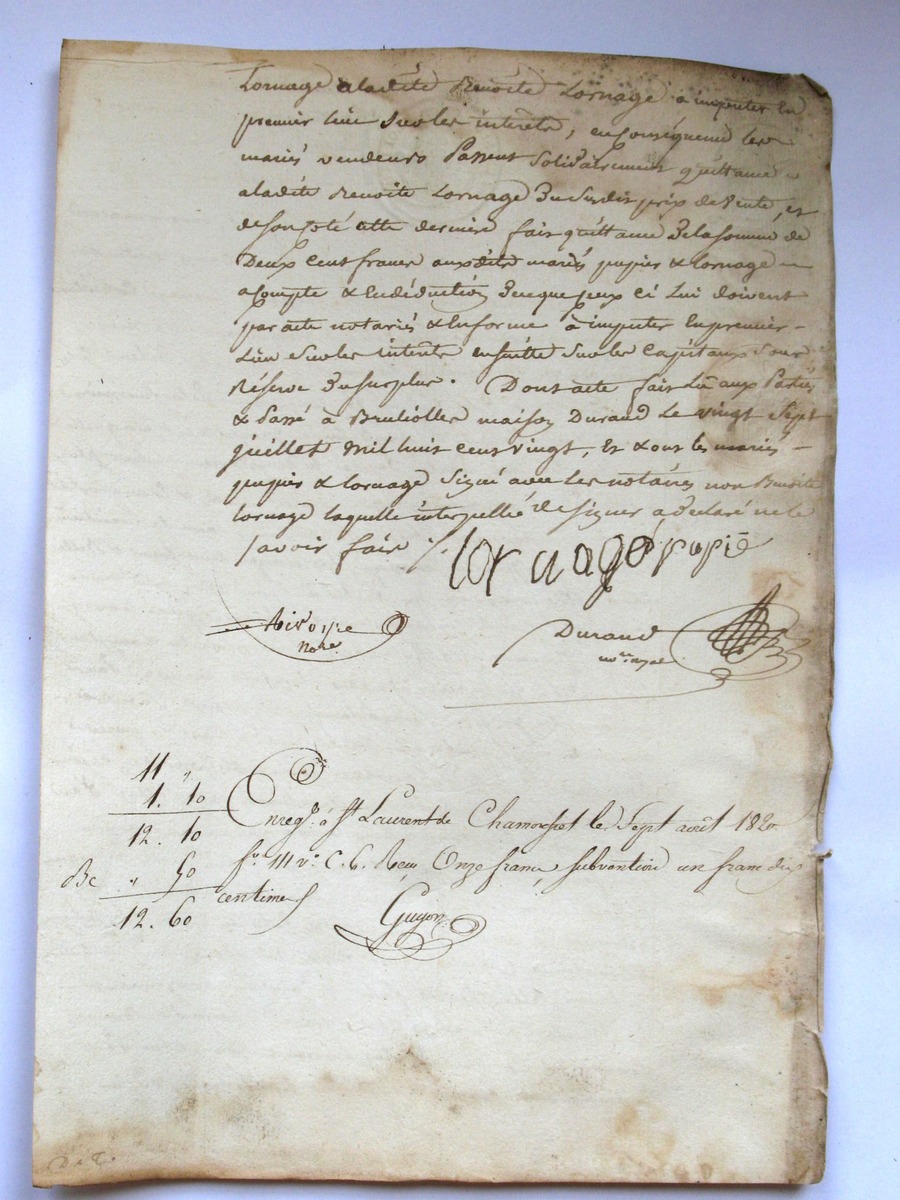 Lornage a ladite Benoite Lornage à imputer en
premier lieu sur les interets, en consequence les
mariés vendeurs Passent Solidairement quittance
a ladite Benoite Lornage Du Susdit prix de Vente, et
de son Coté cette derniere fait quittance De la somme de
Deux Cent francs auxdits mariés pupier & Lornage
a Compte & En déduction De ce que ceux ci Lui doivent
par acte notariés & En forme à imputer En premier
Lieu Sur les interets ensuitte Sur les Capitaux Sous
Réserve Du surplus. Dont acte fait Lu aux Parties
& Passé à Brullolles maison Durand Le vingt Sept
juillet Mil huit cent vingt, Et & ont les mariés
pupier & Lornage Signé avec Les notaires non Benoite
Lornage laquelle interpellée de signer a déclaré ne le
savoir faire ./.
Lornage pupié
Durand
Nore.
11 "
1. 10
12. 10
" 50
12. 60
Enregé. à St. Laurent de Chamousset le Sept août 1820
fo. 111 vo. C. 6. Reçu Onze francs, subvention un franc dix
centimes
Guyon